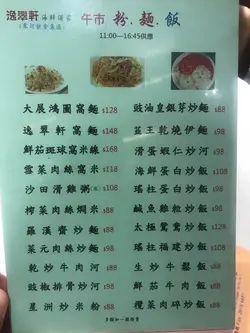 逸翠軒 海鮮酒家
午市 粉.麵.飯
11:00—16:45供應
大展鴻圖窩麵 $128
逸翠軒窩麵 $148
鮮茄斑球窩米線 $168
雪菜肉絲窩米 $108
沙田滑雞粥 $108
榨菜肉絲燜米 $88
羅漢齋炒麵 $88
菜元肉絲炒麵 $88
乾炒牛肉河 $88
豉椒排骨炒河 $98
星洲炒米粉 $88
豉油皇銀芽炒麵 $88
菇王乾燒伊麵 $98
滑蛋蝦仁炒河 $98
海鮮蛋白炒飯 $98
瑤柱蛋白炒飯 $98
鹹魚雞粒炒飯 $98
太極鴛鴦炒飯 $98
瑤柱福建炒飯 $98
生炒牛鬆飯 $88
鮮茄牛肉飯 $88
欖菜肉碎炒飯 $88
另設加一服務費